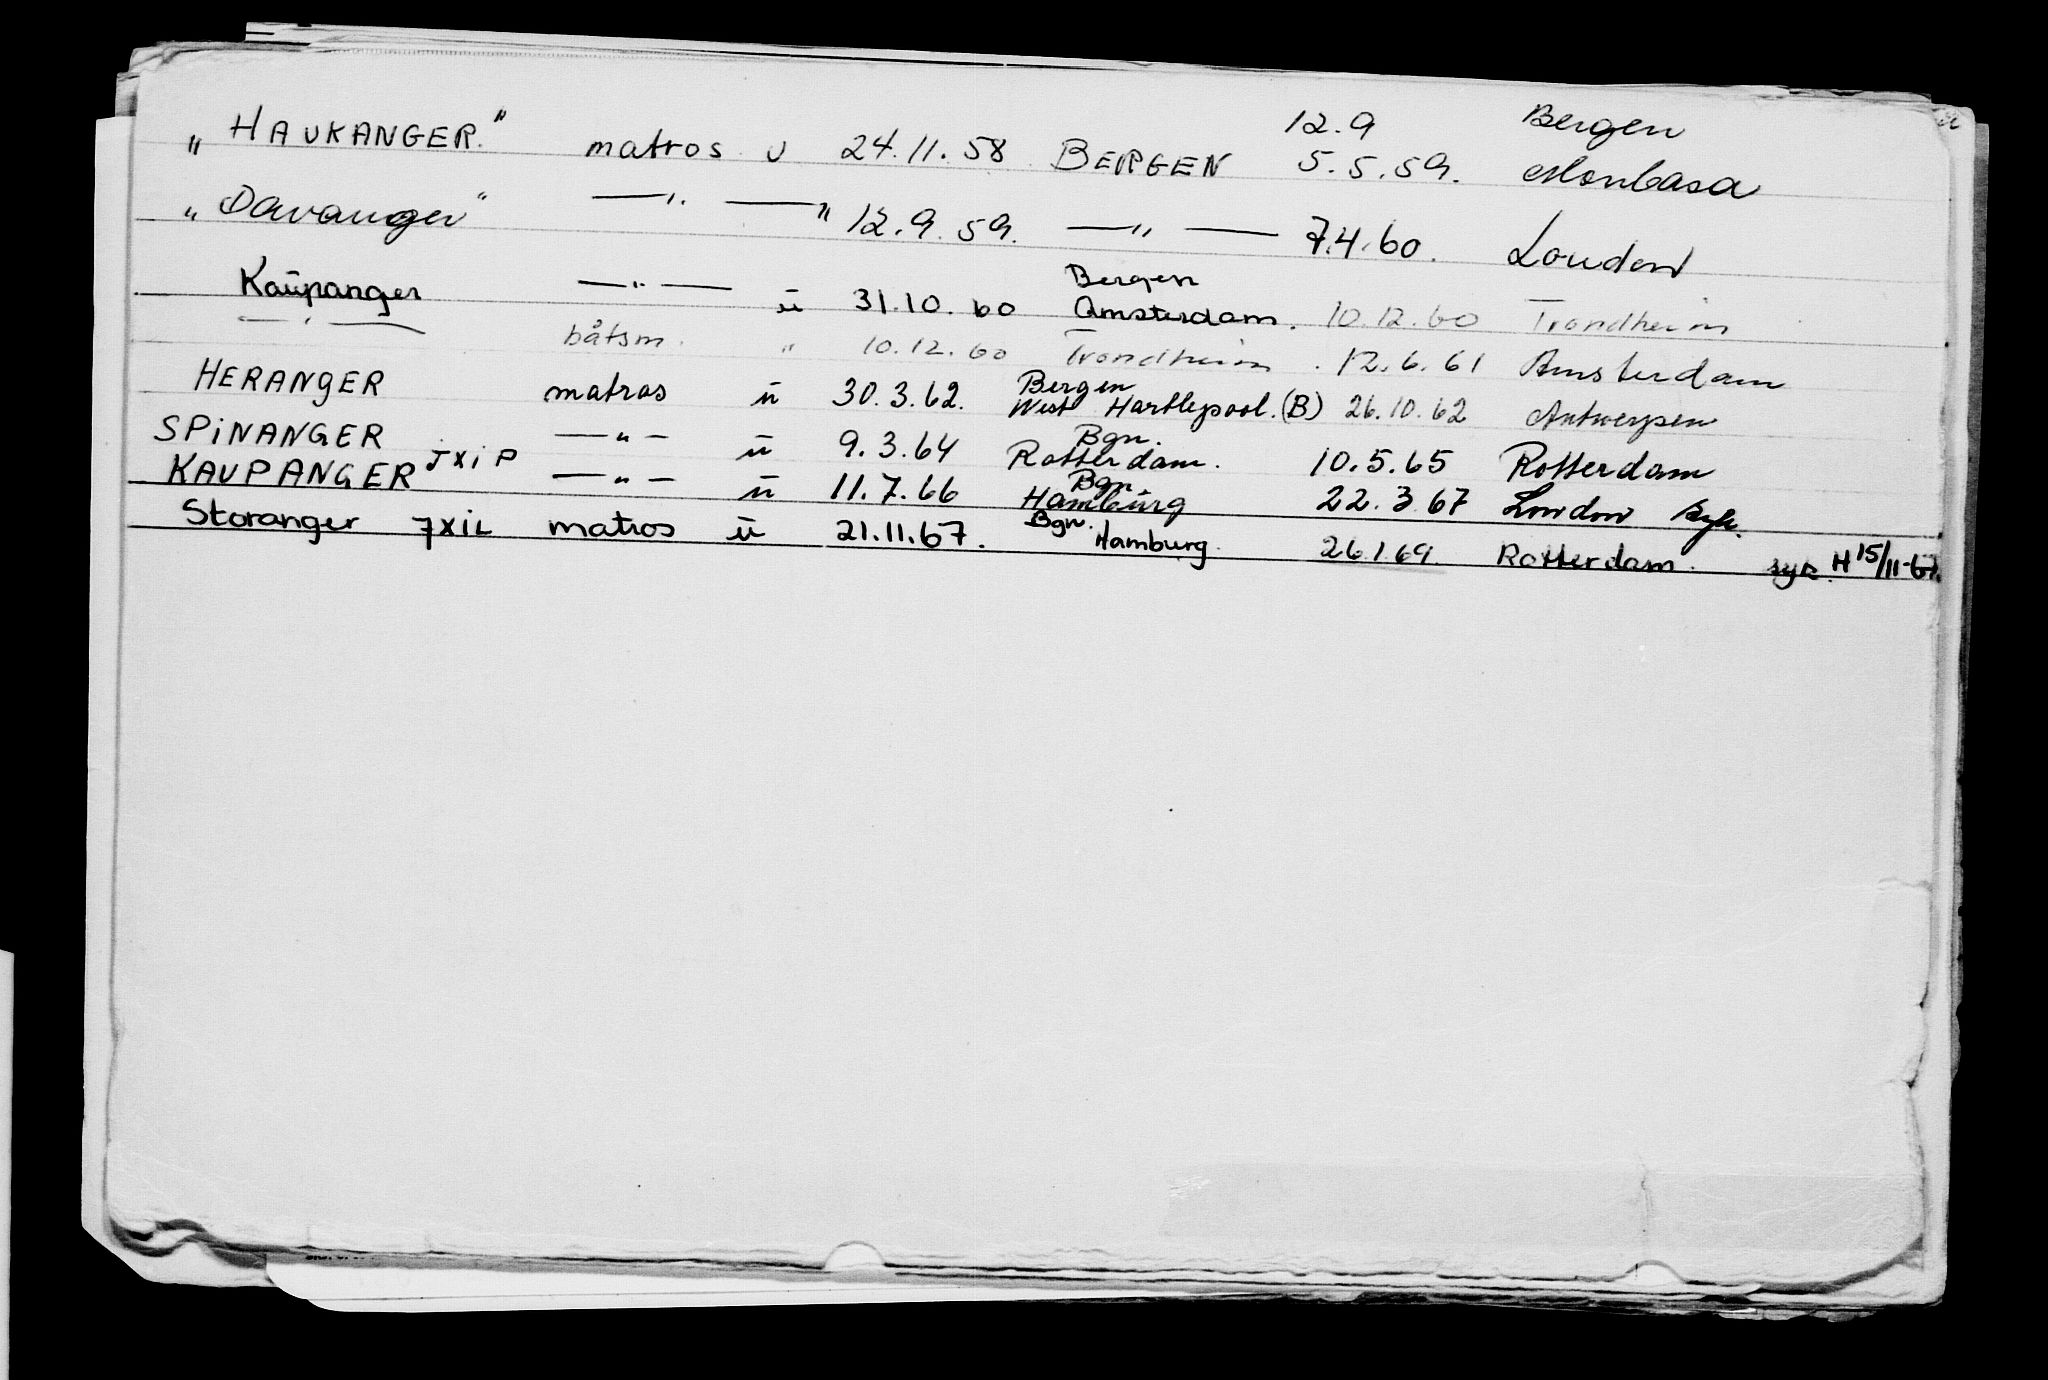 12.9 Bergen
„HAUKANGER." matros u 24.11.58 BERGEN 5.5.59. Mombasa
„Davanger" —"— —" 12.9.59. —"— 7.4.60. London
Kaupanger —"— u 31.10.60 Bergen Amsterdam. 10.12.60 Trondheim
—"— båtsm. " 10.12.60 Trondheim. 12.6.61 Amsterdam
HERANGER matros u 30.3.62. Bergen West Hartlepool. (B) 26.10.62 Antwerpen
SPiNANGER —"— u 9.3.64 Bgn. Rotterdam. 10.5.65 Rotterdam
KAUPANGER JXiP —"— u 11.7.66 Bgn Hamburg 22.3.67 London syk.
Storanger JXiL matros u 21.11.67. Bgn. Hamburg. 26.1.69. Rotterdam. syk. H 15/11-67.